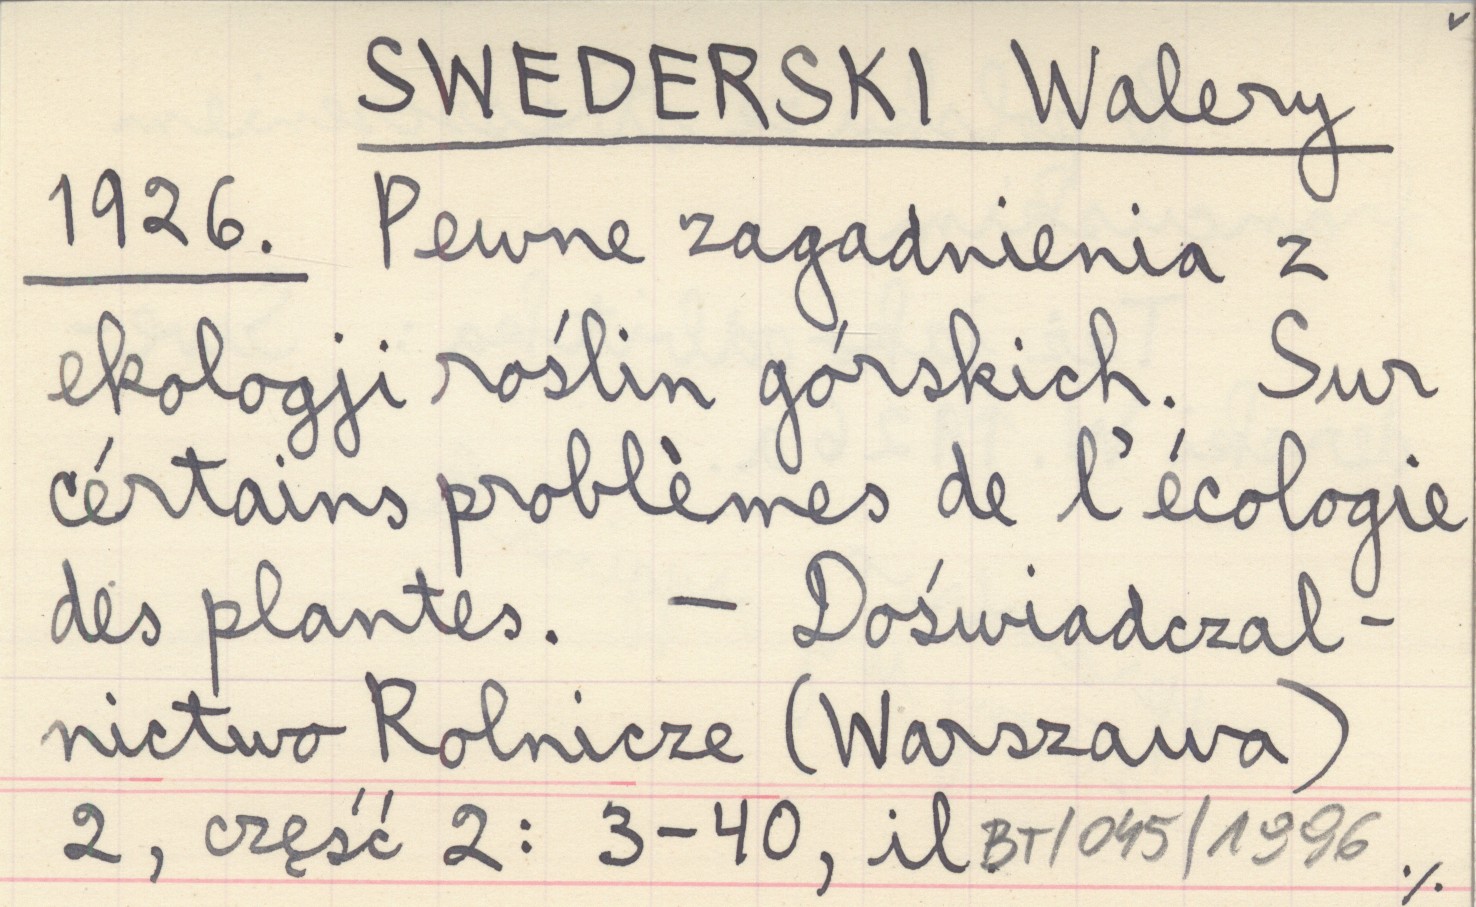 SWEDERSKI Walery
1926. Pewne zagadnienia z
ekologji roślin górskich. Sur
cértains problèmes de l'écologie
des plantes. — Doświadczal-
nictwo Rolnicze (Warszawa)
2, część 2: 3-40, il BT/045/1996 ./.